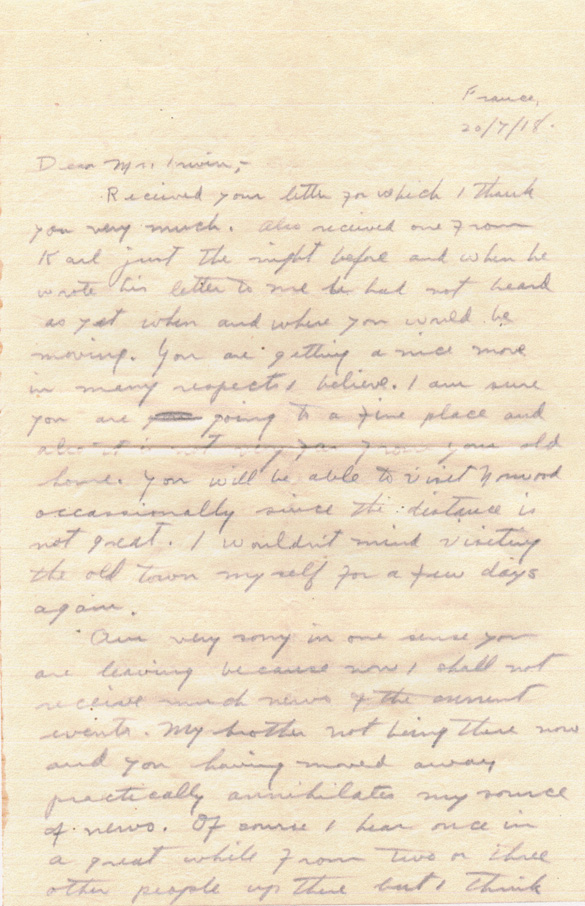 France,
20/7/18.
Dear Mr. Irwin,-
Received your letter for which I thank
you very much. Also received one from
Karl just the night before and when he
wrote his letter to me he had not heard
as yet when and where you would be
moving. You are getting a nice move
in many respects I believe. I am sure
you are going to a fine place and
also it is not very far from your old
home. You will be able to visit Norwood
occassionally since the distance is
not great. I wouldn't mind visiting
the old town myself for a few days
again.
Am very sorry in one sense you
are leaving because now I shall not
receive much news of the current
events. My brother not being there now
and you having moved away
practically annihilates my source
of news. Of course I hear once in
a great while from two or three
other people up there but I think